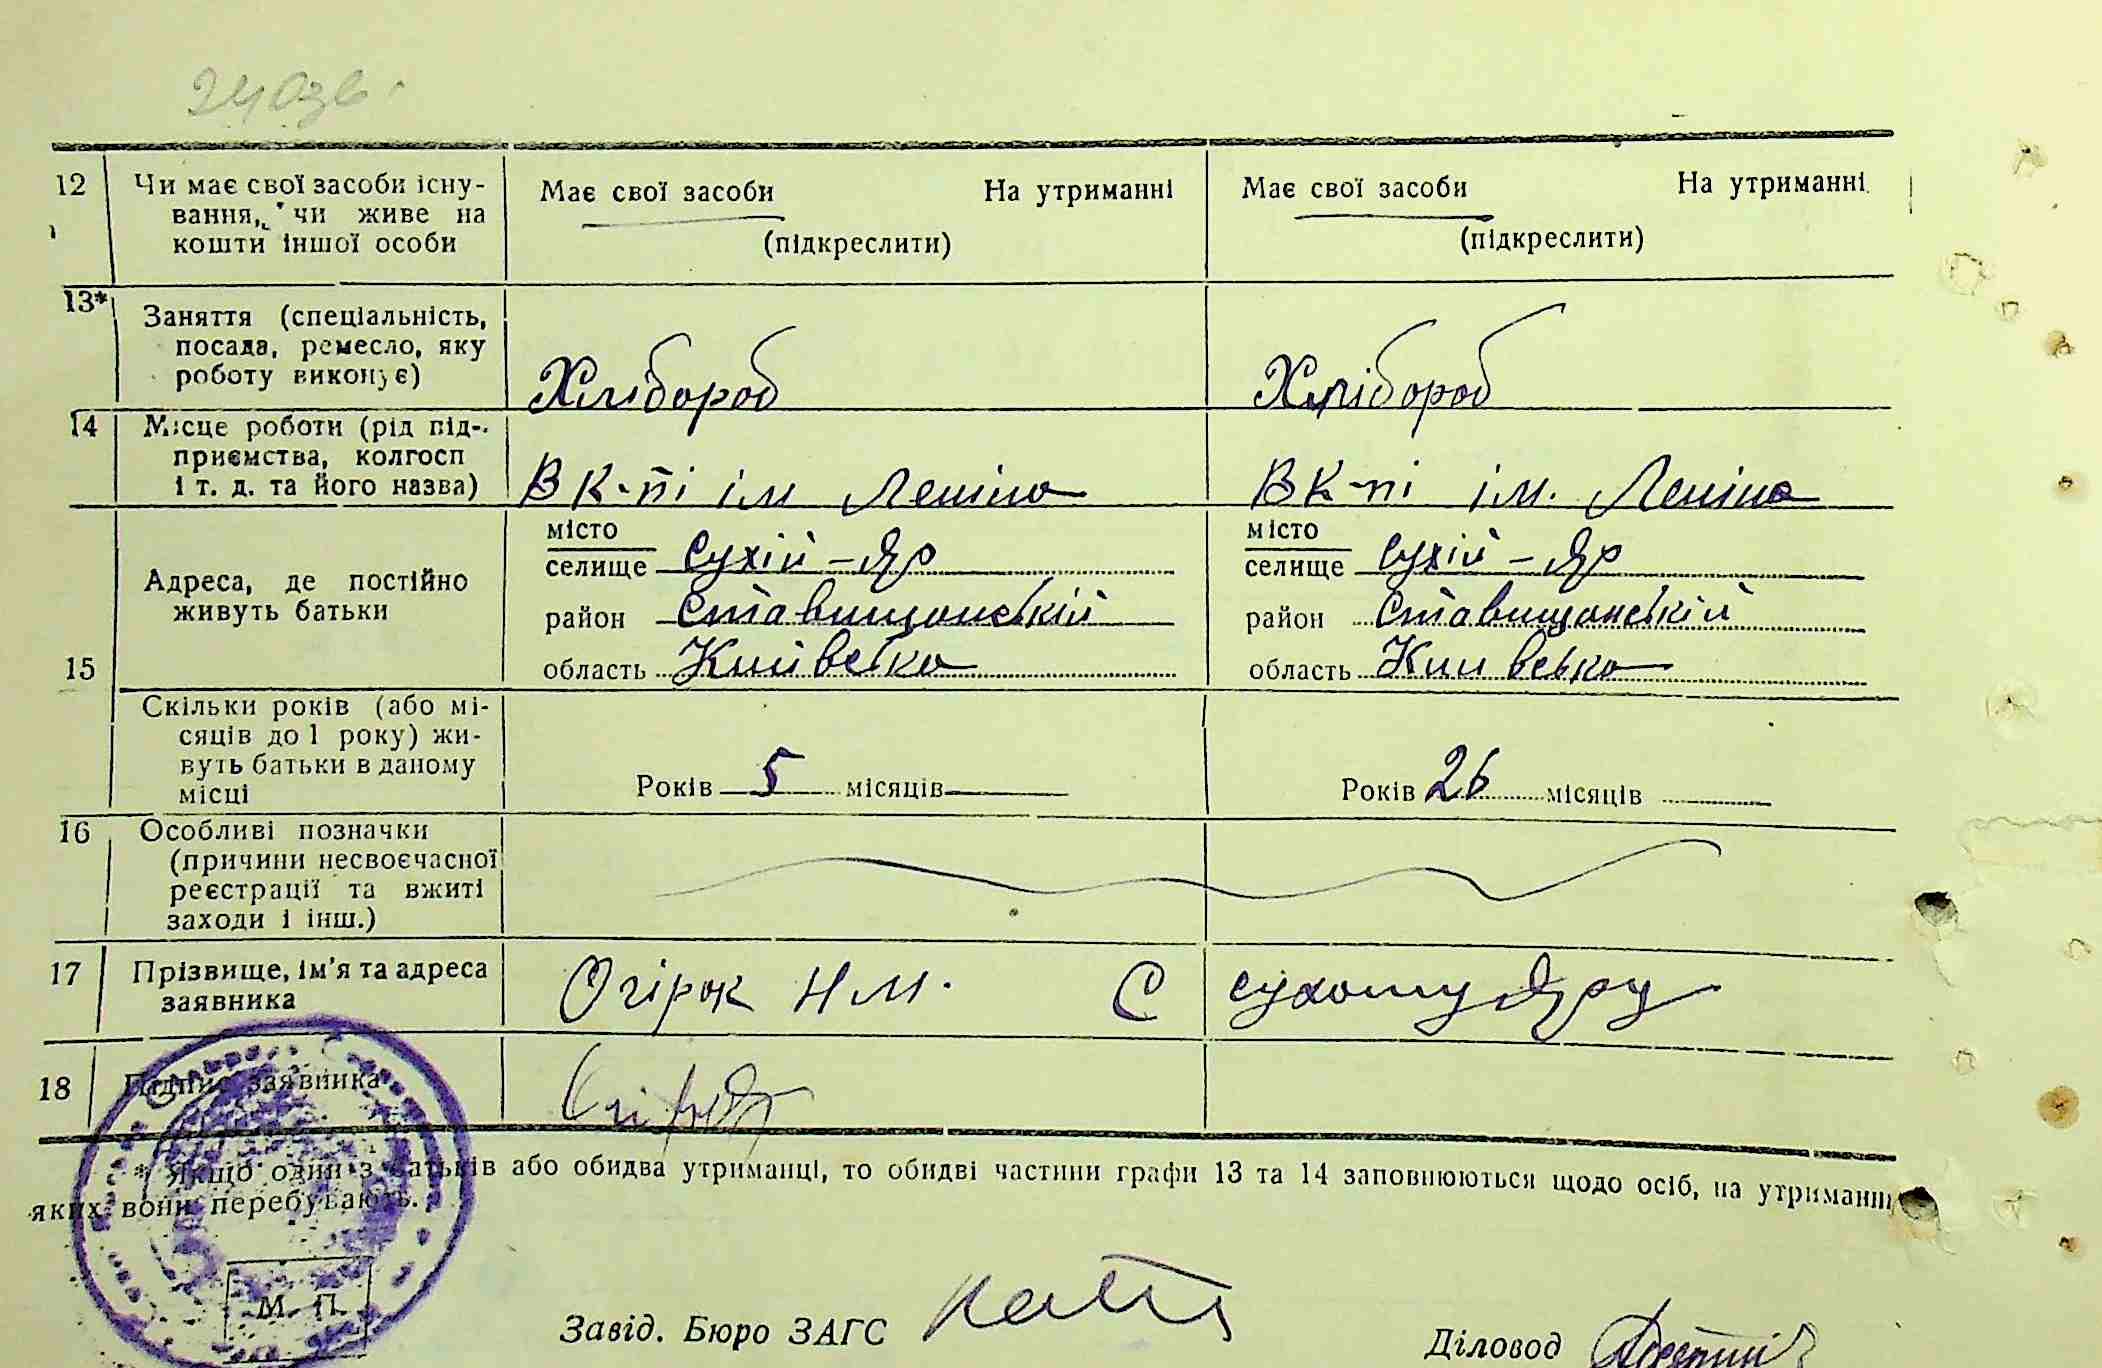 12
Чи має свої засоби існу-
вання, чи живе на
кошти іншої особи
Має свої засоби На утриманні
(підкреслити)
Має свої засоби На утриманні
(підкреслити)
13*
Заняття (спеціальність,
посада, ремесло, яку
роботу виконує)
Хлібороб
Хлібороб
14
Місце роботи (рід під-
приємства, колгосп
і т. д. та його назва)
В К-пі ім Леніна
В К-пі ім. Леніна
15
Адреса, де постійно
живуть батьки
місто
селище Сухій-Яр
район Ставищанській
область Київська
місто
селище Сухій-Яр
район Ставищанській
область Київська
Скільки років (або мі-
сяців до 1 року) жи-
вуть батьки в даному
місці
Років 5 місяців
Років 26 місяців
16
Особливі позначки
(причини несвоєчасної
реєстрації та вжиті
заходи і інш.)
17
Прізвище, ім'я та адреса
заявника
Огірок Н М. С Сухому Яру
18
Підпис заявника
* Якщо один з батьків або обидва утриманці, то обидві частини графи 13 та 14 заповнюються щодо осіб, на утриманні
яких вони перебувають.
М. П.
Завід. Бюро ЗАГС
Діловод